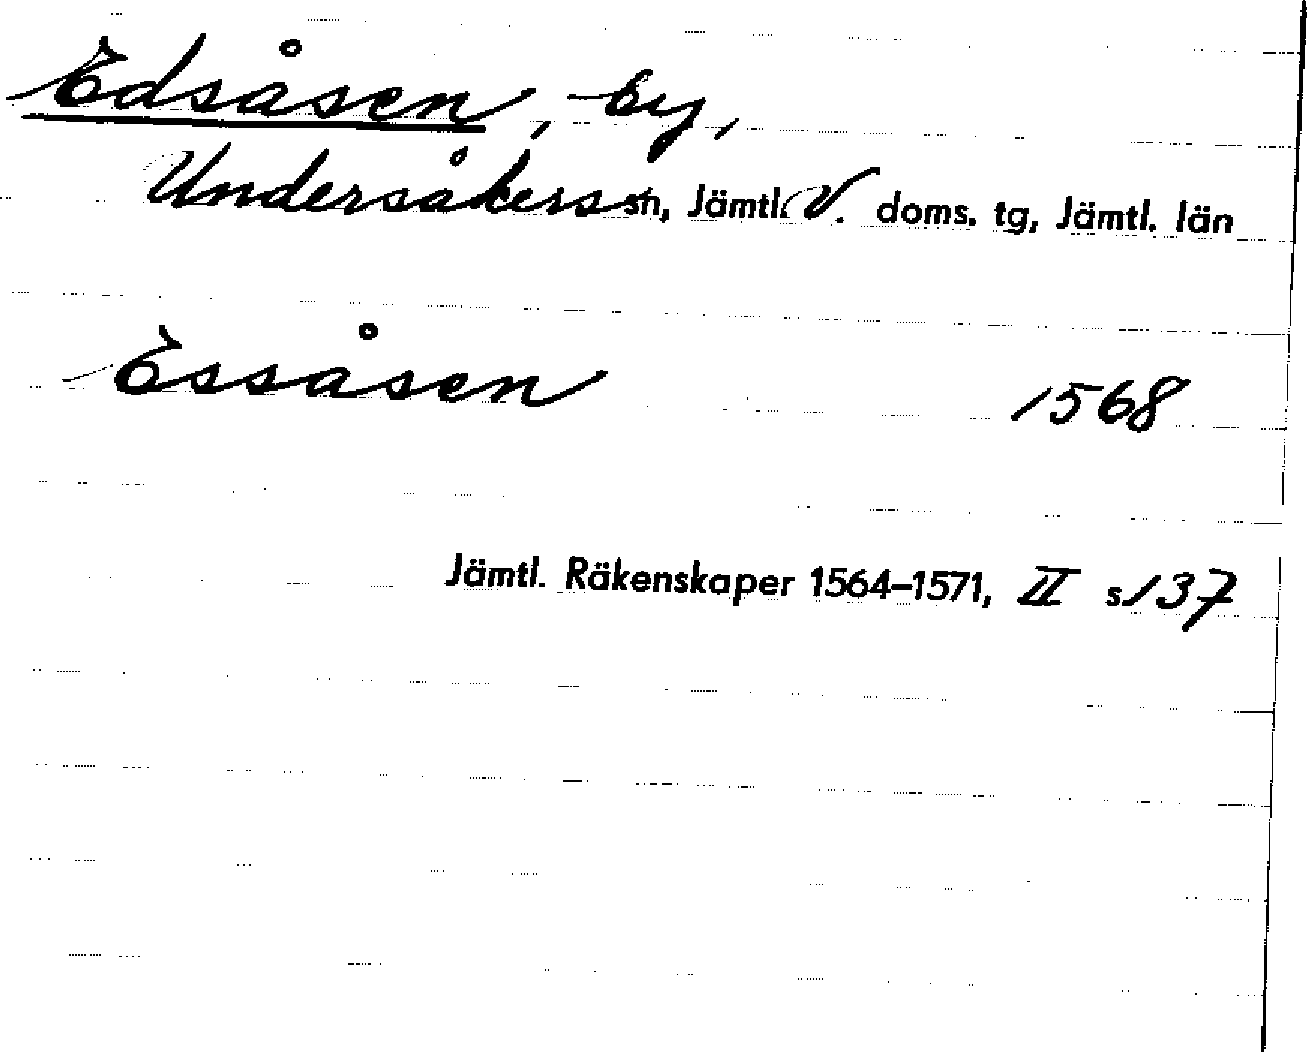 Edsåsen, by,
Undersåkers sn, Jämtl. V. doms. tg, Jämtl. län
Essåsen 1568
Jämtl. Räkenskaper 1564–1571, II s. 137